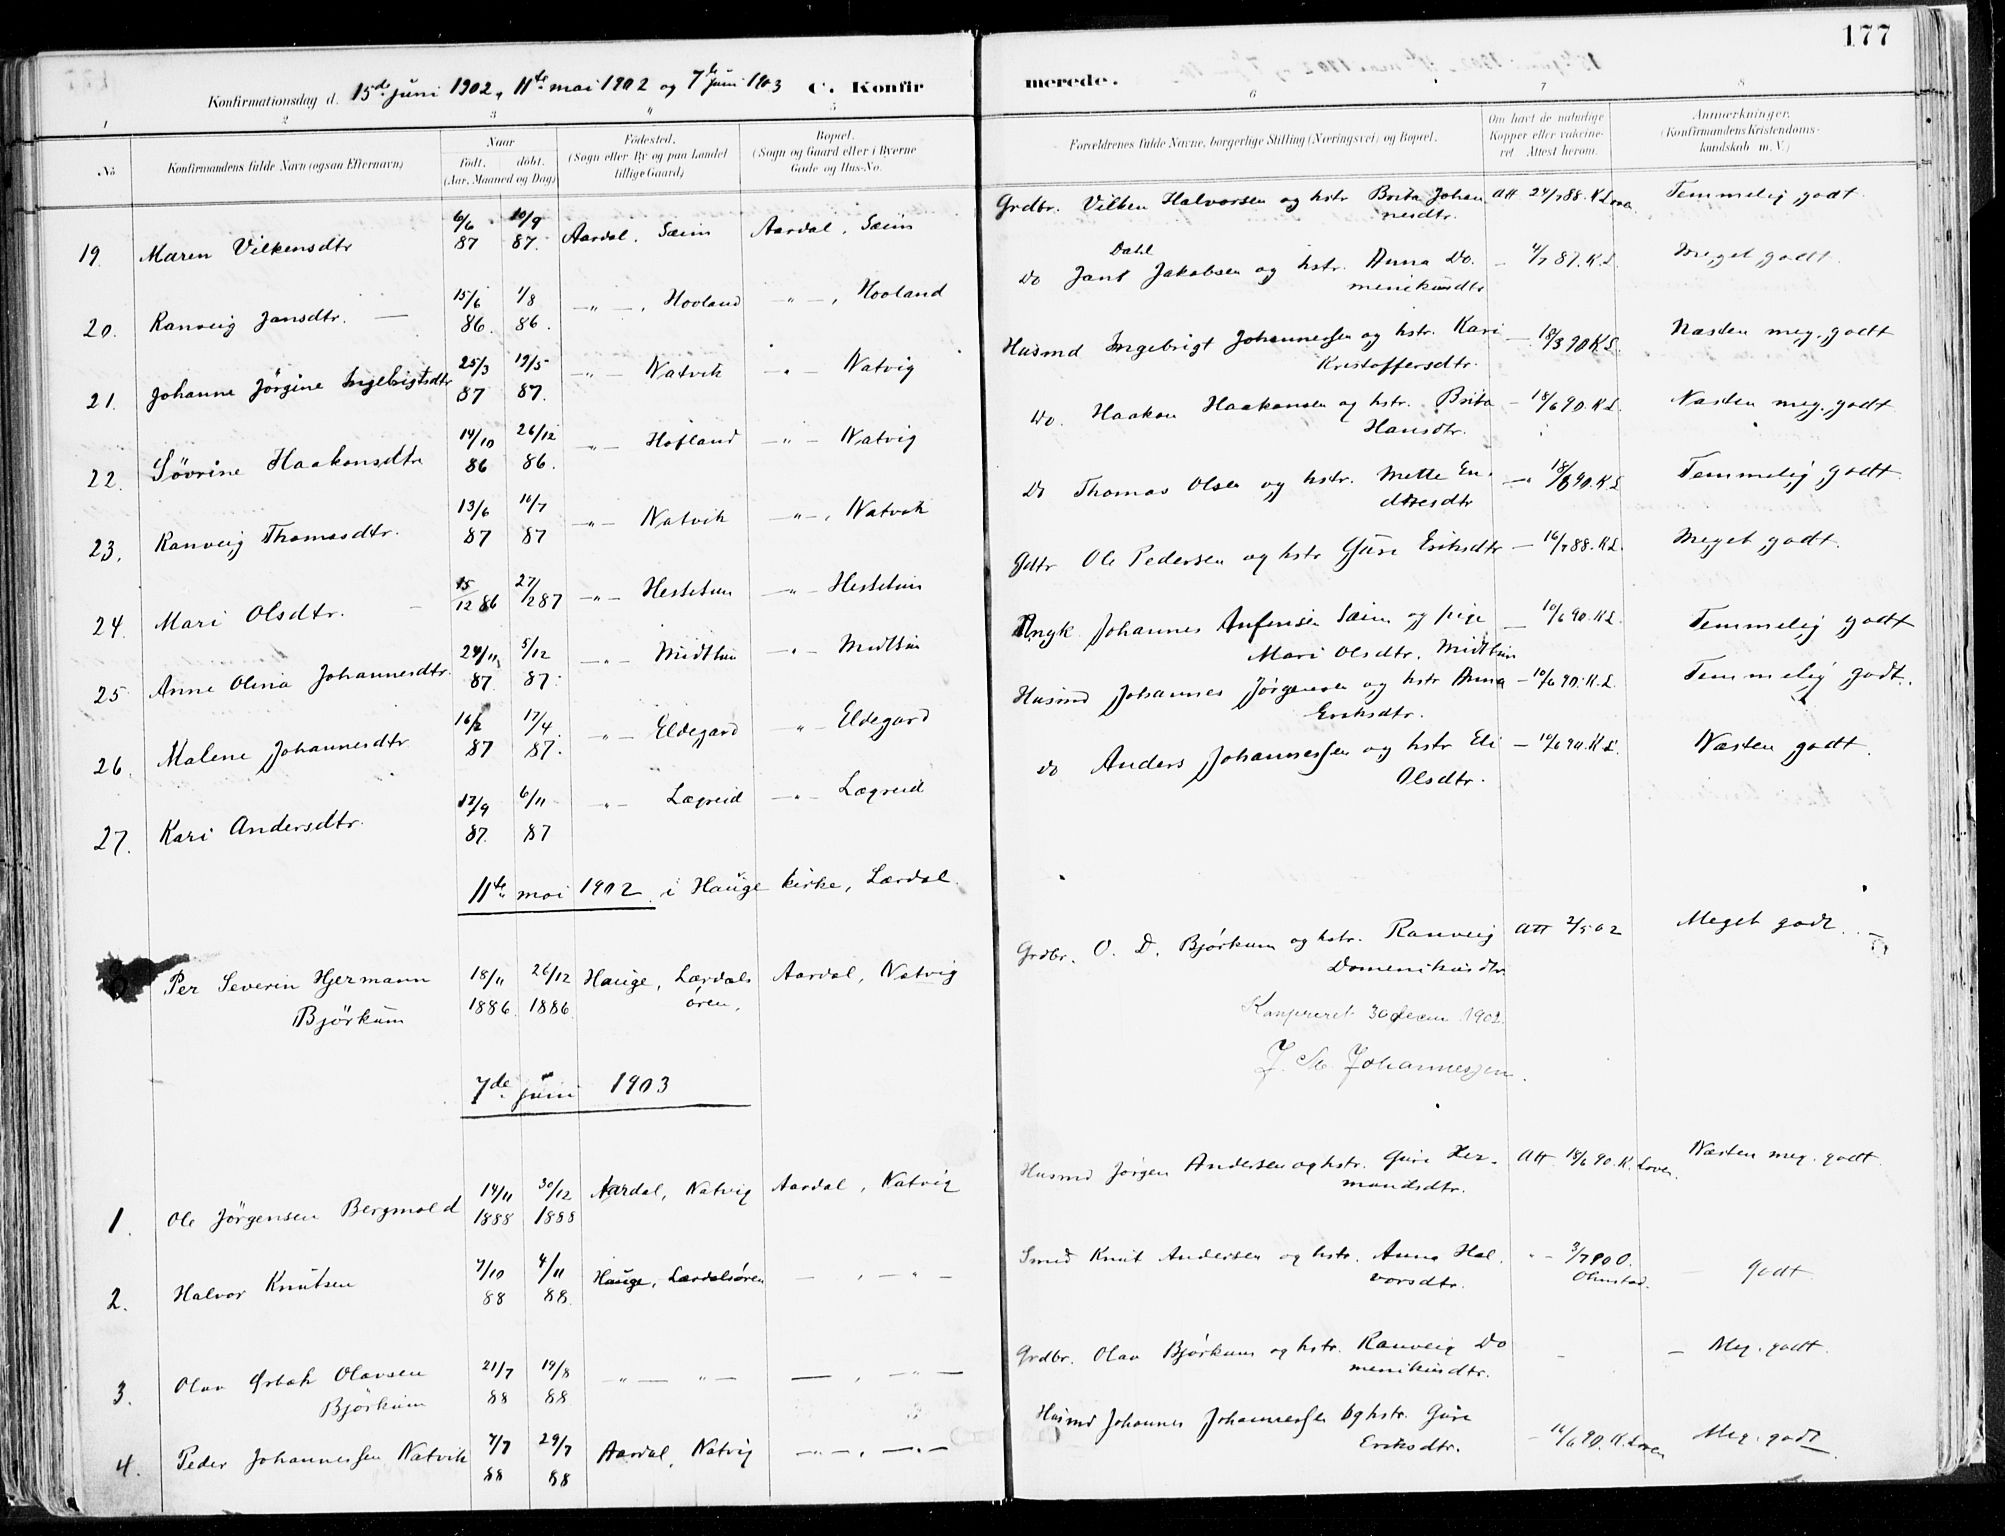 177
Konfirmationsdag d. 15de juni 1902, 11te mai 1902 og 7de juni 1903 C. Konfir merede.
1 2 3 4 5 6 7 8
No Konfirmandens fulde Navn (ogsaa Efternavn) Naar født. døbt. (Aar, Maaned og Dag) Fødested. (Sogn eller By og paa Landet tillige Gaard) Bopæl. (Sogn og Gaard eller i Byerne Gade og Hus-No. Forældrenes fulde Navne, borgerlige Stilling (Næringsvei) og Bopæl. Om havt de naturlige Kopper eller vakcineret Attest herom. Anmærkninger. (Konfirmandens Kristendomskundskab m. V.)
19. Maren Vilkensdtr 6/6 87 10/9 87. Aardal, Sæim Aardal, Sæim Grdbr. Vilken Halvorsen og hstr Brita Johannesdtr. Att 24/7 88. K Lova Temmelig godt
20. Ranveig Jansdtr. — 15/6 86. 1/8 86. —"— , Hovland —"— , Hovland Do Jant Dahl Jakobsen og hstr. Anna Domenikusdtr — 4/7 87. K.L. Meget godt.
21. Johanne Jørgine Ingebrigtsdtr 25/3 87 19/5 87. —"— Natvik —"— Natvig Husmd Ingebrigt Johannessen og hstr. Kari Kristoffersdtr. — 18/3 90 K L. Næsten meg. godt
22. Søvrine Haakonsdtr 14/10 86 26/12 86. —"— Hofland —"— Natvig Do. Haakon Haakonsen og hstr. Brita Hansdtr. — 18/6 90. K L. Næsten meg. godt
23. Ranveig Thomasdtr. 13/6 87 16/7 87 —"— Natvik —"—, Natvik Do Thomas Olsen og hstr. Mette Endresdtr —"— 18/6 90. K L Temmelig godt.
24. Mari Olsdtr. 15/12 86 27/2 87 —"— Hestetun —"— Hestetun Gdbr Ole Pedersen og hstr Guri Eriksdtr — 16/7 88. K L. Meget godt.
25 Anne Olina Johannesdtr. 24/11 87 5/12 87. —"— Midttun —"— Midttun Ungk. Johannes Anfensen Sæim og pige Mari Olsdtr. Midttun — 10/6 90. K L. Temmelig godt
26. Malene Johannesdtr 16/2 87 17/4. 87. —"— Eldegard —"— Eldegard Husmd Johannes Jørgensen og hstr Anna Eriksdtr. — 10/6 90. K. L. Temmelig godt.
27. Kari Andersdtr. 17/9 87. 6/11 87 —"— Lægreid —"— Lægreid Do Anders Johannessen og hstr Eli Olsdtr. — 10/6 90. K L. Næsten godt.
11te mai 1902 i Hauge kirke, Lærdal.
Per Severin Hjermann Bjørkum 18/11 1886. 26/12 1886. Hauge, Lærdalsøren, Aardal, Natvig Grdbr. O. D. Bjørkum og hstr. Ranveig Domenikusdtr Att 2/5 02 Meget godt.
30 1902.
Johannessen.
7de juni 1903
1. Ole Jørgensen Bergmold 14/11 1888 30/12 1888 Aardal, Natvig Aardal, Natvig Husmd Jørgen Andersen og hstr. Guri Hermandsdtr. Att 18/6 90. K. Loven. Næsten meg. godt.
2. Halvor Knutsen 7/10 88 4/11 88. Hauge, Lærdalsøren — , —"— Smed Knut Andersen og hstr. Anna Halvorsdtr. "— 3/7 90 O. Olmstad. — godt.
3. Olav Ørbæk Olavsen Bjørkum 21/7 88 19/8 88 —"— —"— — , —"— Grdbr. Olav Bjørkum og hstr. Ranveig Domenikusdtr. — — Meg. godt.
4. Peder Johannessen Natvik 7/7 88 29/7 88 Aardal, Natvig —"— , —"— Husmd Johannes Johannessen og hstr. Guri Eriksdtr. — 16/6 90. K. Loven Meg. godt.